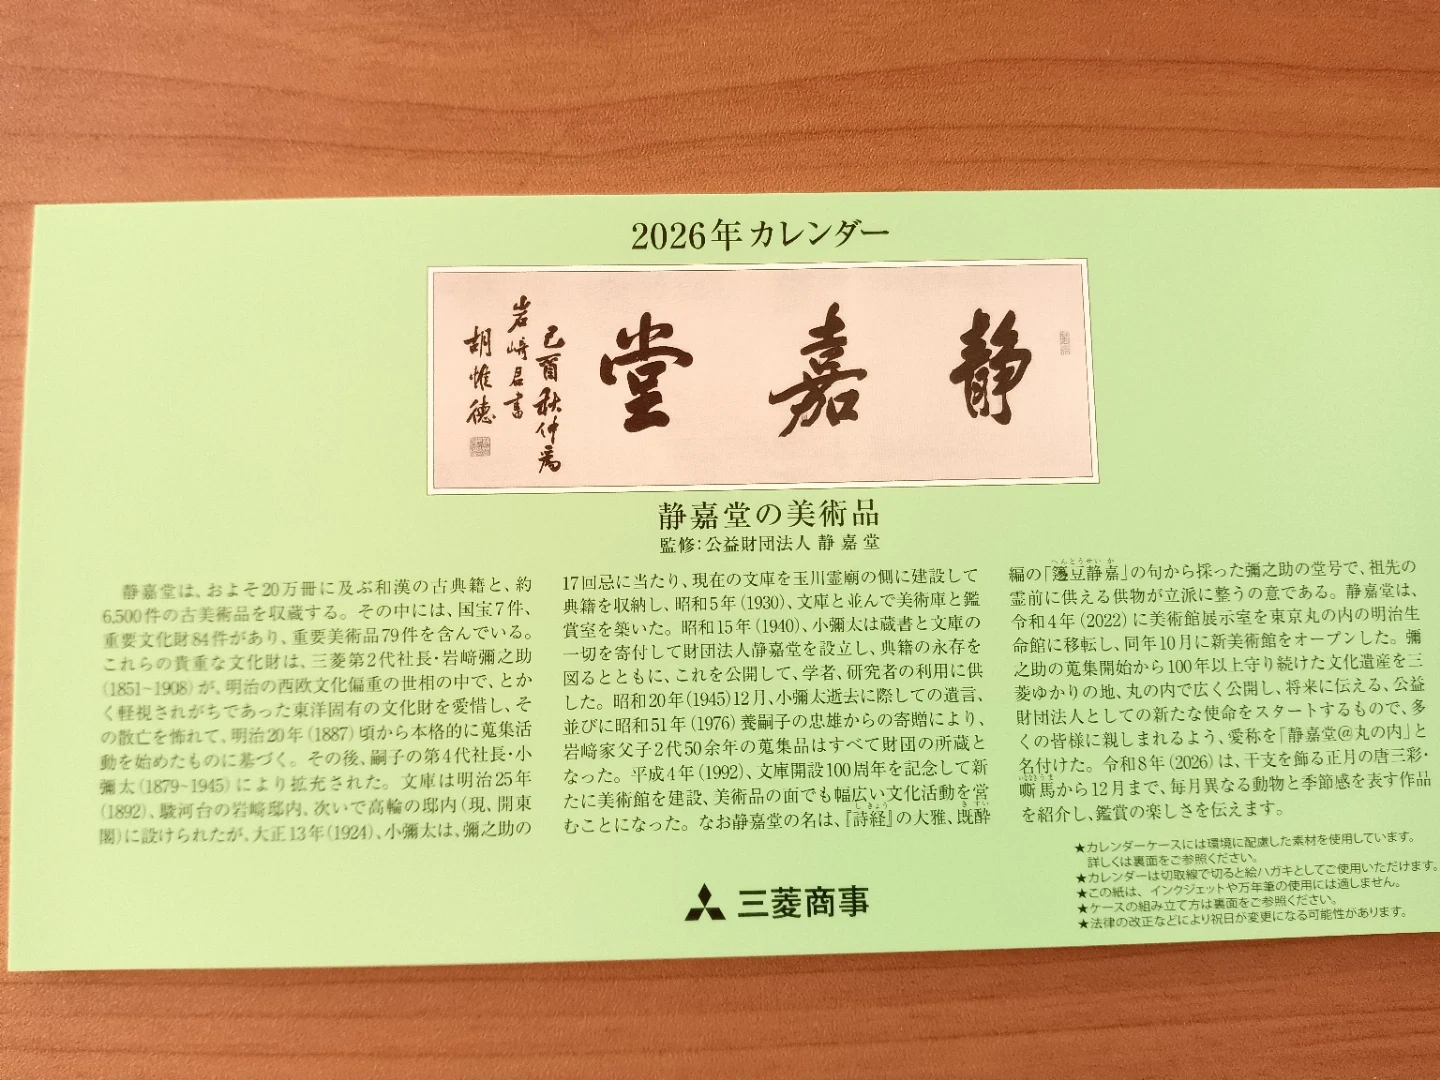 2026年カレンダー
静嘉堂
己酉秋仲為
岩﨑君書
胡惟德
静嘉堂の美術品
監修：公益財団法人 静嘉堂
静嘉堂は、およそ20万冊に及ぶ和漢の古典籍と、約
6,500件の古美術品を収蔵する。その中には、国宝7件、
重要文化財84件があり、重要美術品79件を含んでいる。
これらの貴重な文化財は、三菱第2代社長・岩﨑彌之助
(1851~1908)が、明治の西欧文化偏重の世相の中で、とか
く軽視されがちであった東洋固有の文化財を愛惜し、そ
の散亡を怖れて、明治20年(1887)頃から本格的に蒐集活
動を始めたものに基づく。その後、嗣子の第4代社長・小
彌太(1879~1945)により拡充された。文庫は明治25年
(1892)、駿河台の岩﨑邸内、次いで高輪の邸内(現、開東
閣)に設けられたが、大正13年(1924)、小彌太は、彌之助の
17回忌に当たり、現在の文庫を玉川霊廟の側に建設して
典籍を収納し、昭和5年(1930)、文庫と並んで美術庫と鑑
賞室を築いた。昭和15年(1940)、小彌太は蔵書と文庫の
一切を寄付して財団法人静嘉堂を設立し、典籍の永存を
図るとともに、これを公開して、学者、研究者の利用に供
した。昭和20年(1945)12月、小彌太逝去に際しての遺言、
並びに昭和51年(1976)養嗣子の忠雄からの寄贈により、
岩﨑家父子2代50余年の蒐集品はすべて財団の所蔵と
なった。平成4年(1992)、文庫開設100周年を記念して新
たに美術館を建設、美術品の面でも幅広い文化活動を営
しきょう きすい
むことになった。なお静嘉堂の名は、『詩経』の大雅、既酔
へんとうせいか
編の「籩豆静嘉」の句から採った彌之助の堂号で、祖先の
霊前に供える供物が立派に整うの意である。静嘉堂は、
令和4年(2022)に美術館展示室を東京丸の内の明治生
命館に移転し、同年10月に新美術館をオープンした。彌
之助の蒐集開始から100年以上守り続けた文化遺産を三
菱ゆかりの地、丸の内で広く公開し、将来に伝える、公益
財団法人としての新たな使命をスタートするもので、多
くの皆様に親しまれるよう、愛称を「静嘉堂@丸の内」と
名付けた。令和8年(2026)は、干支を飾る正月の唐三彩・
いななきうま
嘶馬から12月まで、毎月異なる動物と季節感を表す作品
を紹介し、鑑賞の楽しさを伝えます。
三菱商事
★カレンダーケースには環境に配慮した素材を使用しています。
詳しくは裏面をご参照ください。
★カレンダーは切取線で切ると絵ハガキとしてご使用いただけます。
★この紙は、インクジェットや万年筆の使用には適しません。
★ケースの組み立て方は裏面をご参照ください。
★法律の改正などにより祝日が変更になる可能性があります。